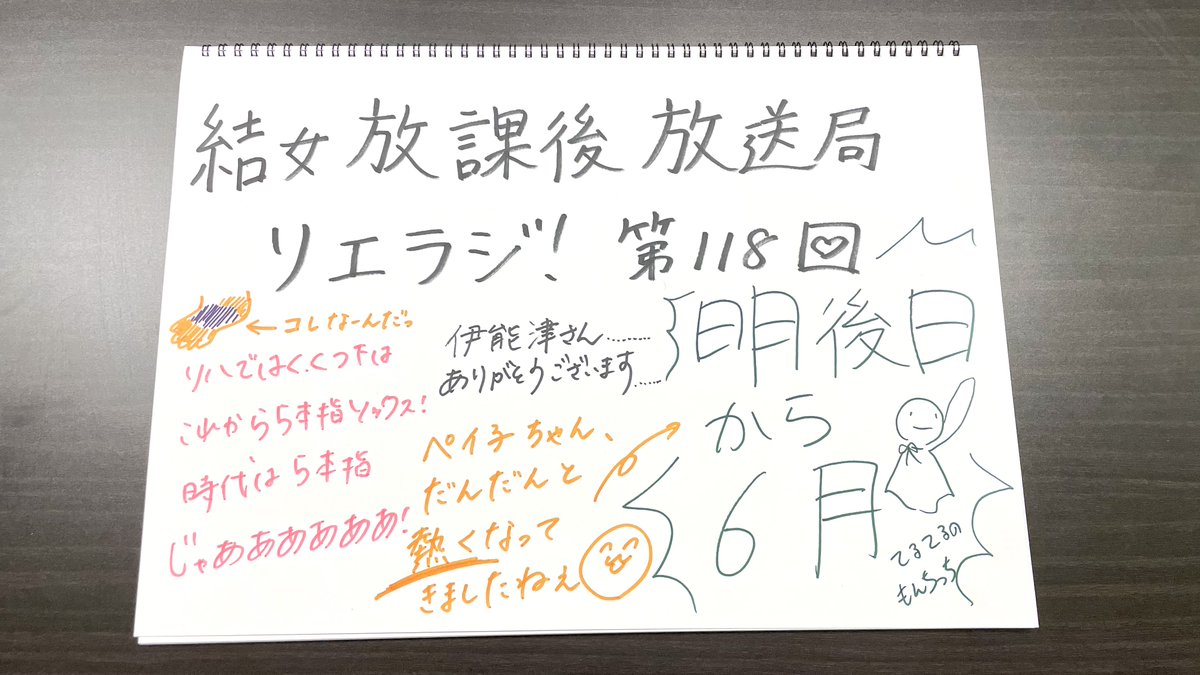 結女放課後放送局
リエラジ! 第118回
←コレなーんだっ
リハではくくつ下は
これから5本指ソックス!
時代は5本指
じゃああああああ!
伊能津さん………
ありがとうございます……
ペイ子ちゃん、
だんだんと
熱くなって
きましたねぇ
明後日
から
6月
てるてるの
もんちっち